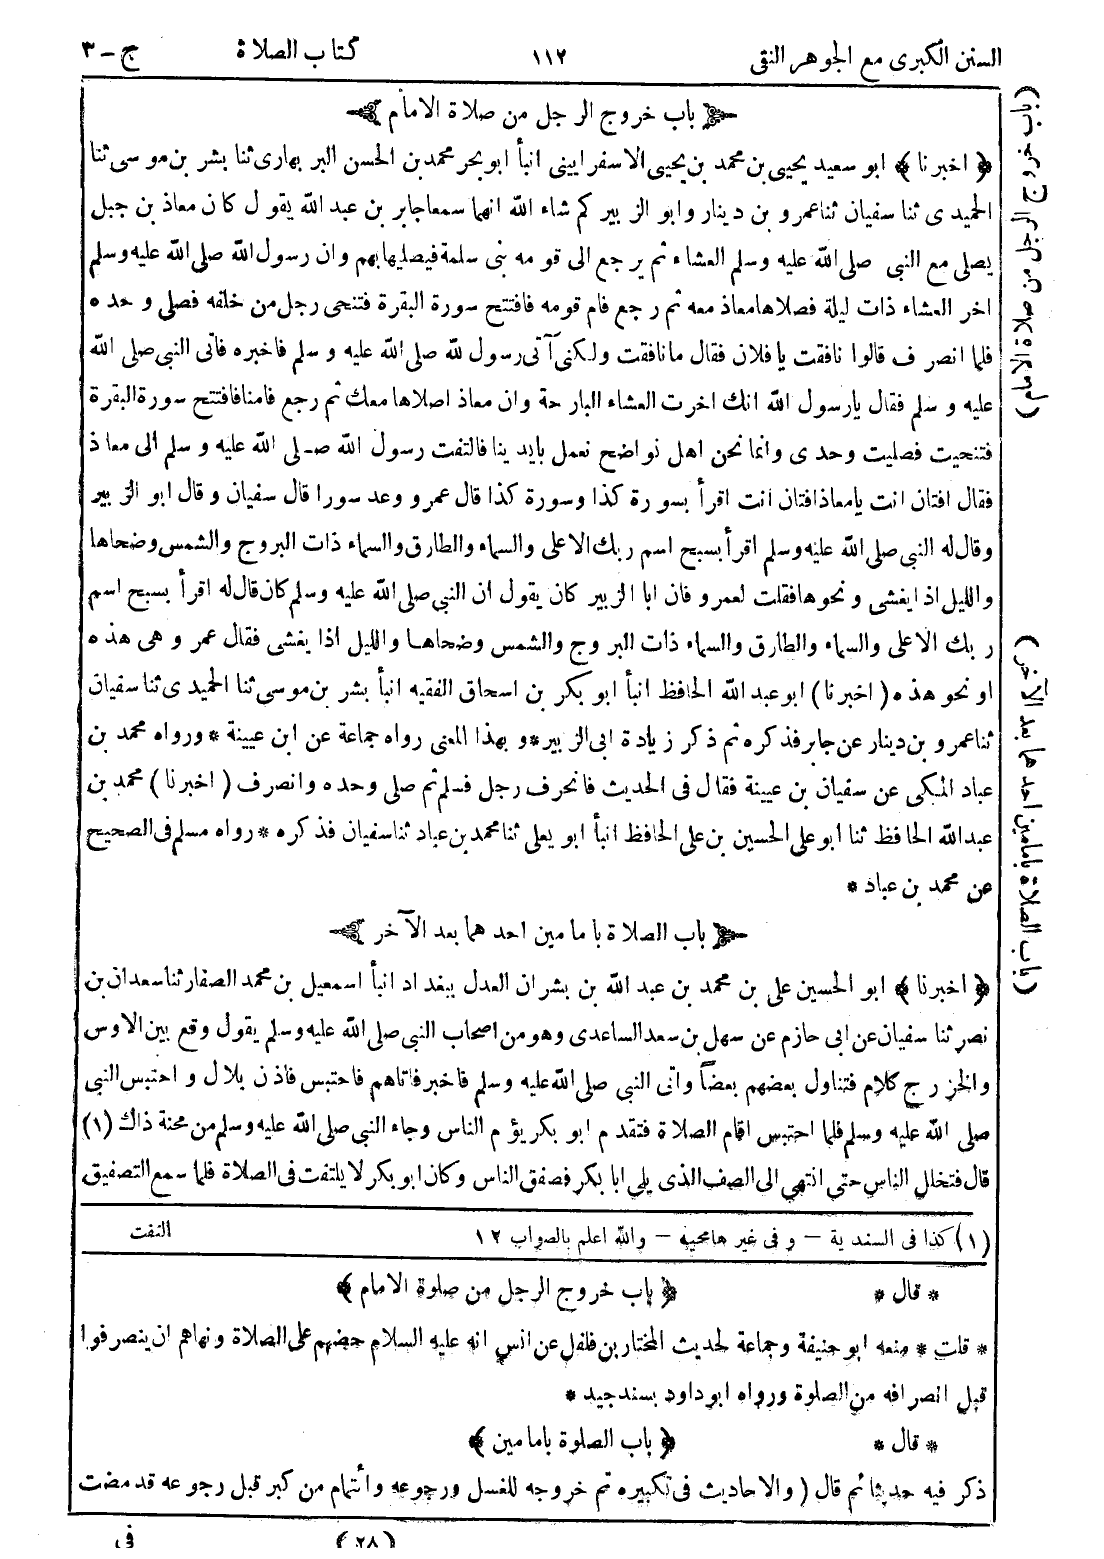 السنن الكبرى مع الجوهر النقى ١١٢ كتاب الصلاة ج - ٣
باب خروج الرجل من صلاة الامام
﴿ اخبرنا ﴾ ابو سعيد يحيى بن محمد بن يحيى الاسفرايينى انبأ ابو بحر محمد بن الحسن البربهارى ثنا بشر بن موسى ثنا
الحميدى ثنا سفيان ثنا عمرو بن دينار وابو الزبير كم شاء الله انهما سمعا جابر بن عبد الله يقول كان معاذ بن جبل
يصلى مع النبى صلى الله عليه وسلم العشاء ثم يرجع الى قومه بنى سلمة فيصليها بهم وان رسول الله صلى الله عليه وسلم
اخر العشاء ذات ليلة فصلاها معاذ معه ثم رجع فام قومه فافتتح سورة البقرة فتنحى رجل من خلفه فصلى وحده
فلما انصرف قالوا نافقت يا فلان فقال ما نافقت ولكنى آتى رسول لله صلى الله عليه وسلم فاخبره فاتى النبى صلى الله
عليه وسلم فقال يا رسول الله انك اخرت العشاء البارحة وان معاذ اصلاها معك ثم رجع فامنا فافتتح سورة البقرة
فتنحيت فصليت وحدى وانما نحن اهل نواضح نعمل بايدينا فالتفت رسول الله صلى الله عليه وسلم الى معاذ
فقال افتان انت يا معاذ افتان انت اقرأ بسورة كذا وسورة كذا قال عمرو وعد سورا قال سفيان وقال ابو الزبير
وقال له النبى صلى الله عليه وسلم اقرأ بسبح اسم ربك الاعلى والسماء والطارق والسماء ذات البروج والشمس وضحاها
والليل اذا يغشى ونحوها فقلت لعمرو فان ابا الزبير كان يقول ان النبى صلى الله عليه وسلم كان قال له اقرأ بسبح اسم
ربك الاعلى والسماء والطارق والسماء ذات البروج والشمس وضحاها والليل اذا يغشى فقال عمرو هى هذه
او نحو هذه ( اخبرنا ) ابو عبد الله الحافظ انبأ ابو بكر بن اسحاق الفقيه انبأ بشر بن موسى ثنا الحميدى ثنا سفيان
ثنا عمرو بن دينار عن جابر فذكره ثم ذكر زيادة ابى الزبير * و بهذا المعنى رواه جماعة عن ابن عيينة * ورواه محمد بن
عباد المكى عن سفيان بن عيينة فقال فى الحديث فانحرف رجل فسلم ثم صلى وحده وانصرف ( اخبرنا ) محمد بن
عبد الله الحافظ ثنا ابو على الحسين بن على الحافظ انبأ ابو يعلى ثنا محمد بن عباد ثنا سفيان فذكره * رواه مسلم فى الصحيح
عن محمد بن عباد *
باب الصلاة بامامين احدهما بعد الآخر
﴿ اخبرنا ﴾ ابو الحسين على بن محمد بن عبد الله بن بشران العدل ببغداد انبأ اسمعيل بن محمد الصفار ثنا سعدان بن
نصر ثنا سفيان عن ابى حازم عن سهل بن سعد الساعدى وهو من اصحاب النبى صلى الله عليه وسلم يقول وقع بين الاوس
والخزرج كلام فتناول بعضهم بعضاً واتى النبى صلى الله عليه وسلم فاخبر فاتاهم فاحتبس فاذن بلال و احتبس النبى
صلى الله عليه وسلم فلما احتبس اقام الصلاة فتقدم ابو بكر يؤم الناس وجاء النبى صلى الله عليه وسلم من محنة ذاك (١)
قال فتخلل الناس حتى انتهى الى الصف الذى يلى ابا بكر فصفق الناس وكان ابو بكر لا يلتفت فى الصلاة فلما سمع التصفيق
(١) كذا فى السندية - و فى غيرها محيته - والله اعلم بالصواب ١٢ التفت
* قال * ﴿ باب خروج الرجل من صلوة الامام ﴾
* قلت * منعه ابو حنيفة وجماعة لحديث المختار بن فلفل عن انس انه عليه السلام حضهم على الصلاة ونهاهم ان ينصرفوا
قبل انصرافه من الصلوة ورواه ابو داود بسند جيد *
* قال * ﴿ باب الصلوة بامامين ﴾
ذكر فيه حديثا ثم قال ( والاحاديث فى تكبيره ثم خروجه للغسل ورجوعه وائتمام من كبر قبل رجوعه قد مضت
(٢٨) فى
(باب خروج الرجل من صلاة الامام)
(باب الصلاة بامامين احدهما بعد الآخر)